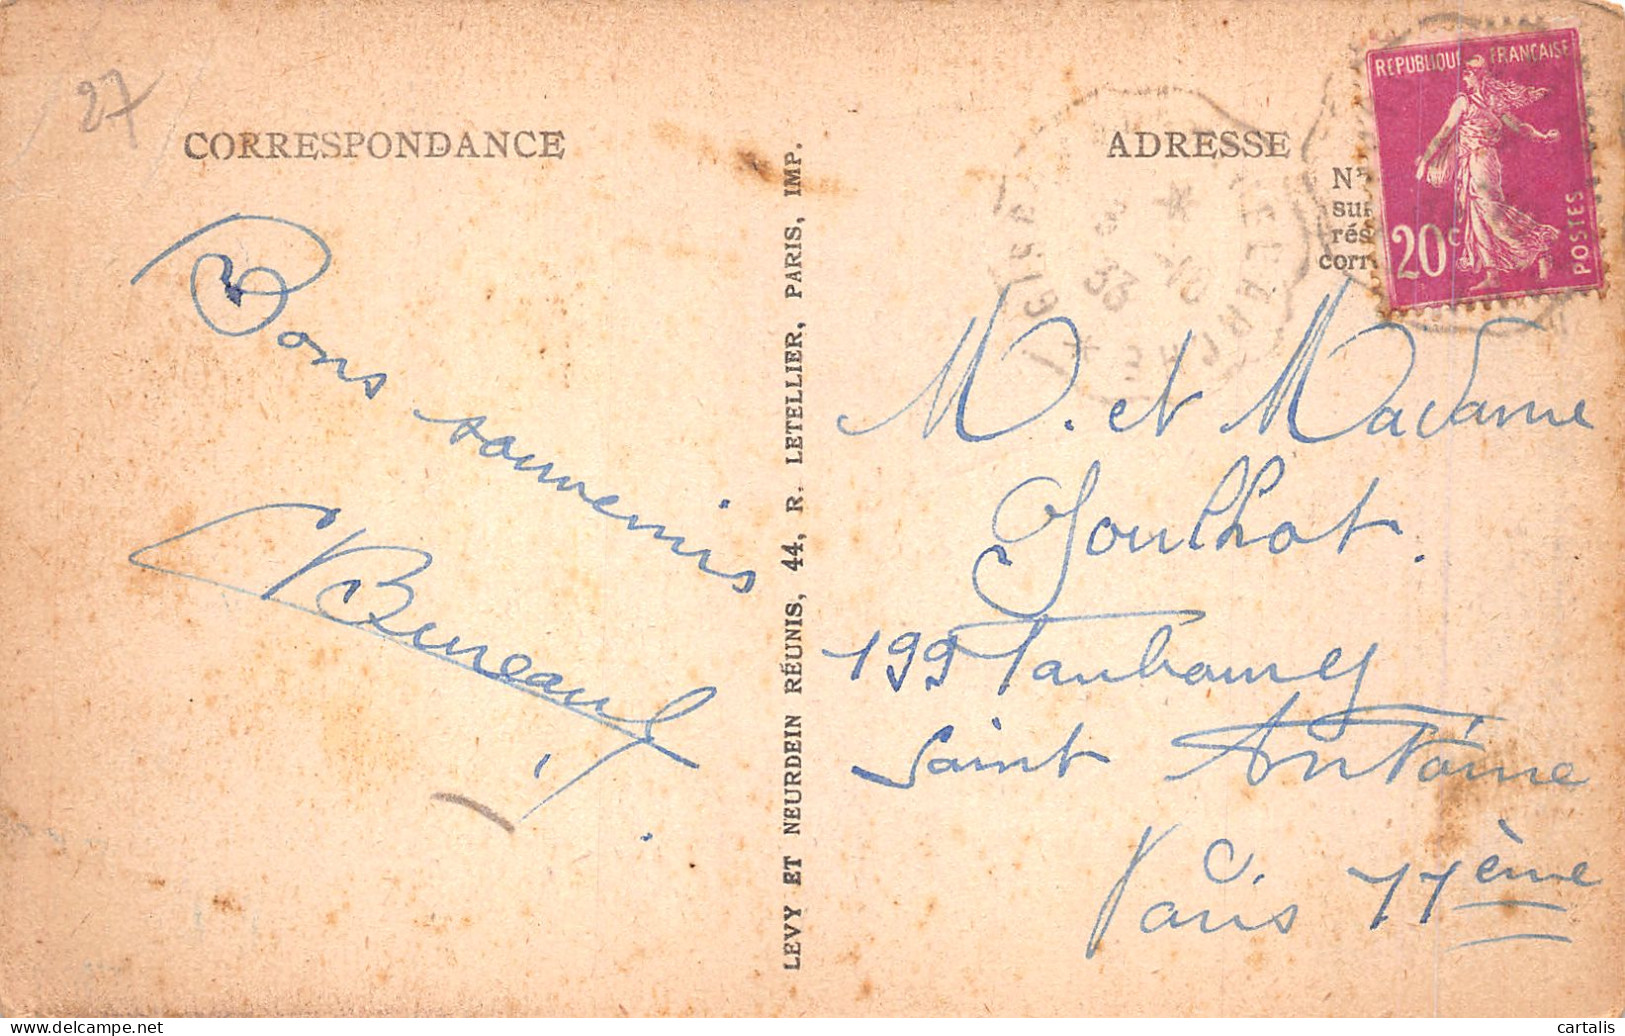 27
CORRESPONDANCE
Bons souvenirs
Bureau
LEVY ET NEURDEIN RÉUNIS, 44, R. LETELLIER, PARIS, IMP.
ADRESSE
REPUBLIQUE FRANÇAISE
20c
POSTES
33
M. et Madame
Joulhot.
199 Faubourg
Saint Antoine
Paris 11ème
delcampe.net
cartalis